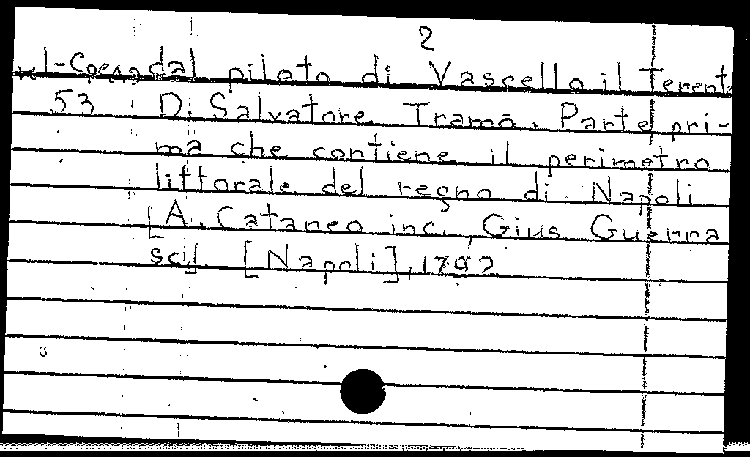 2
dal piloto di Vascello il Terent
53 D. Salvatore Tramā. Parte pri-
ma che contiene il perimetro
littorale del regno di Napoli
[A. Cataneo inc., Gius Guerra
scil. [Napoli], 1792